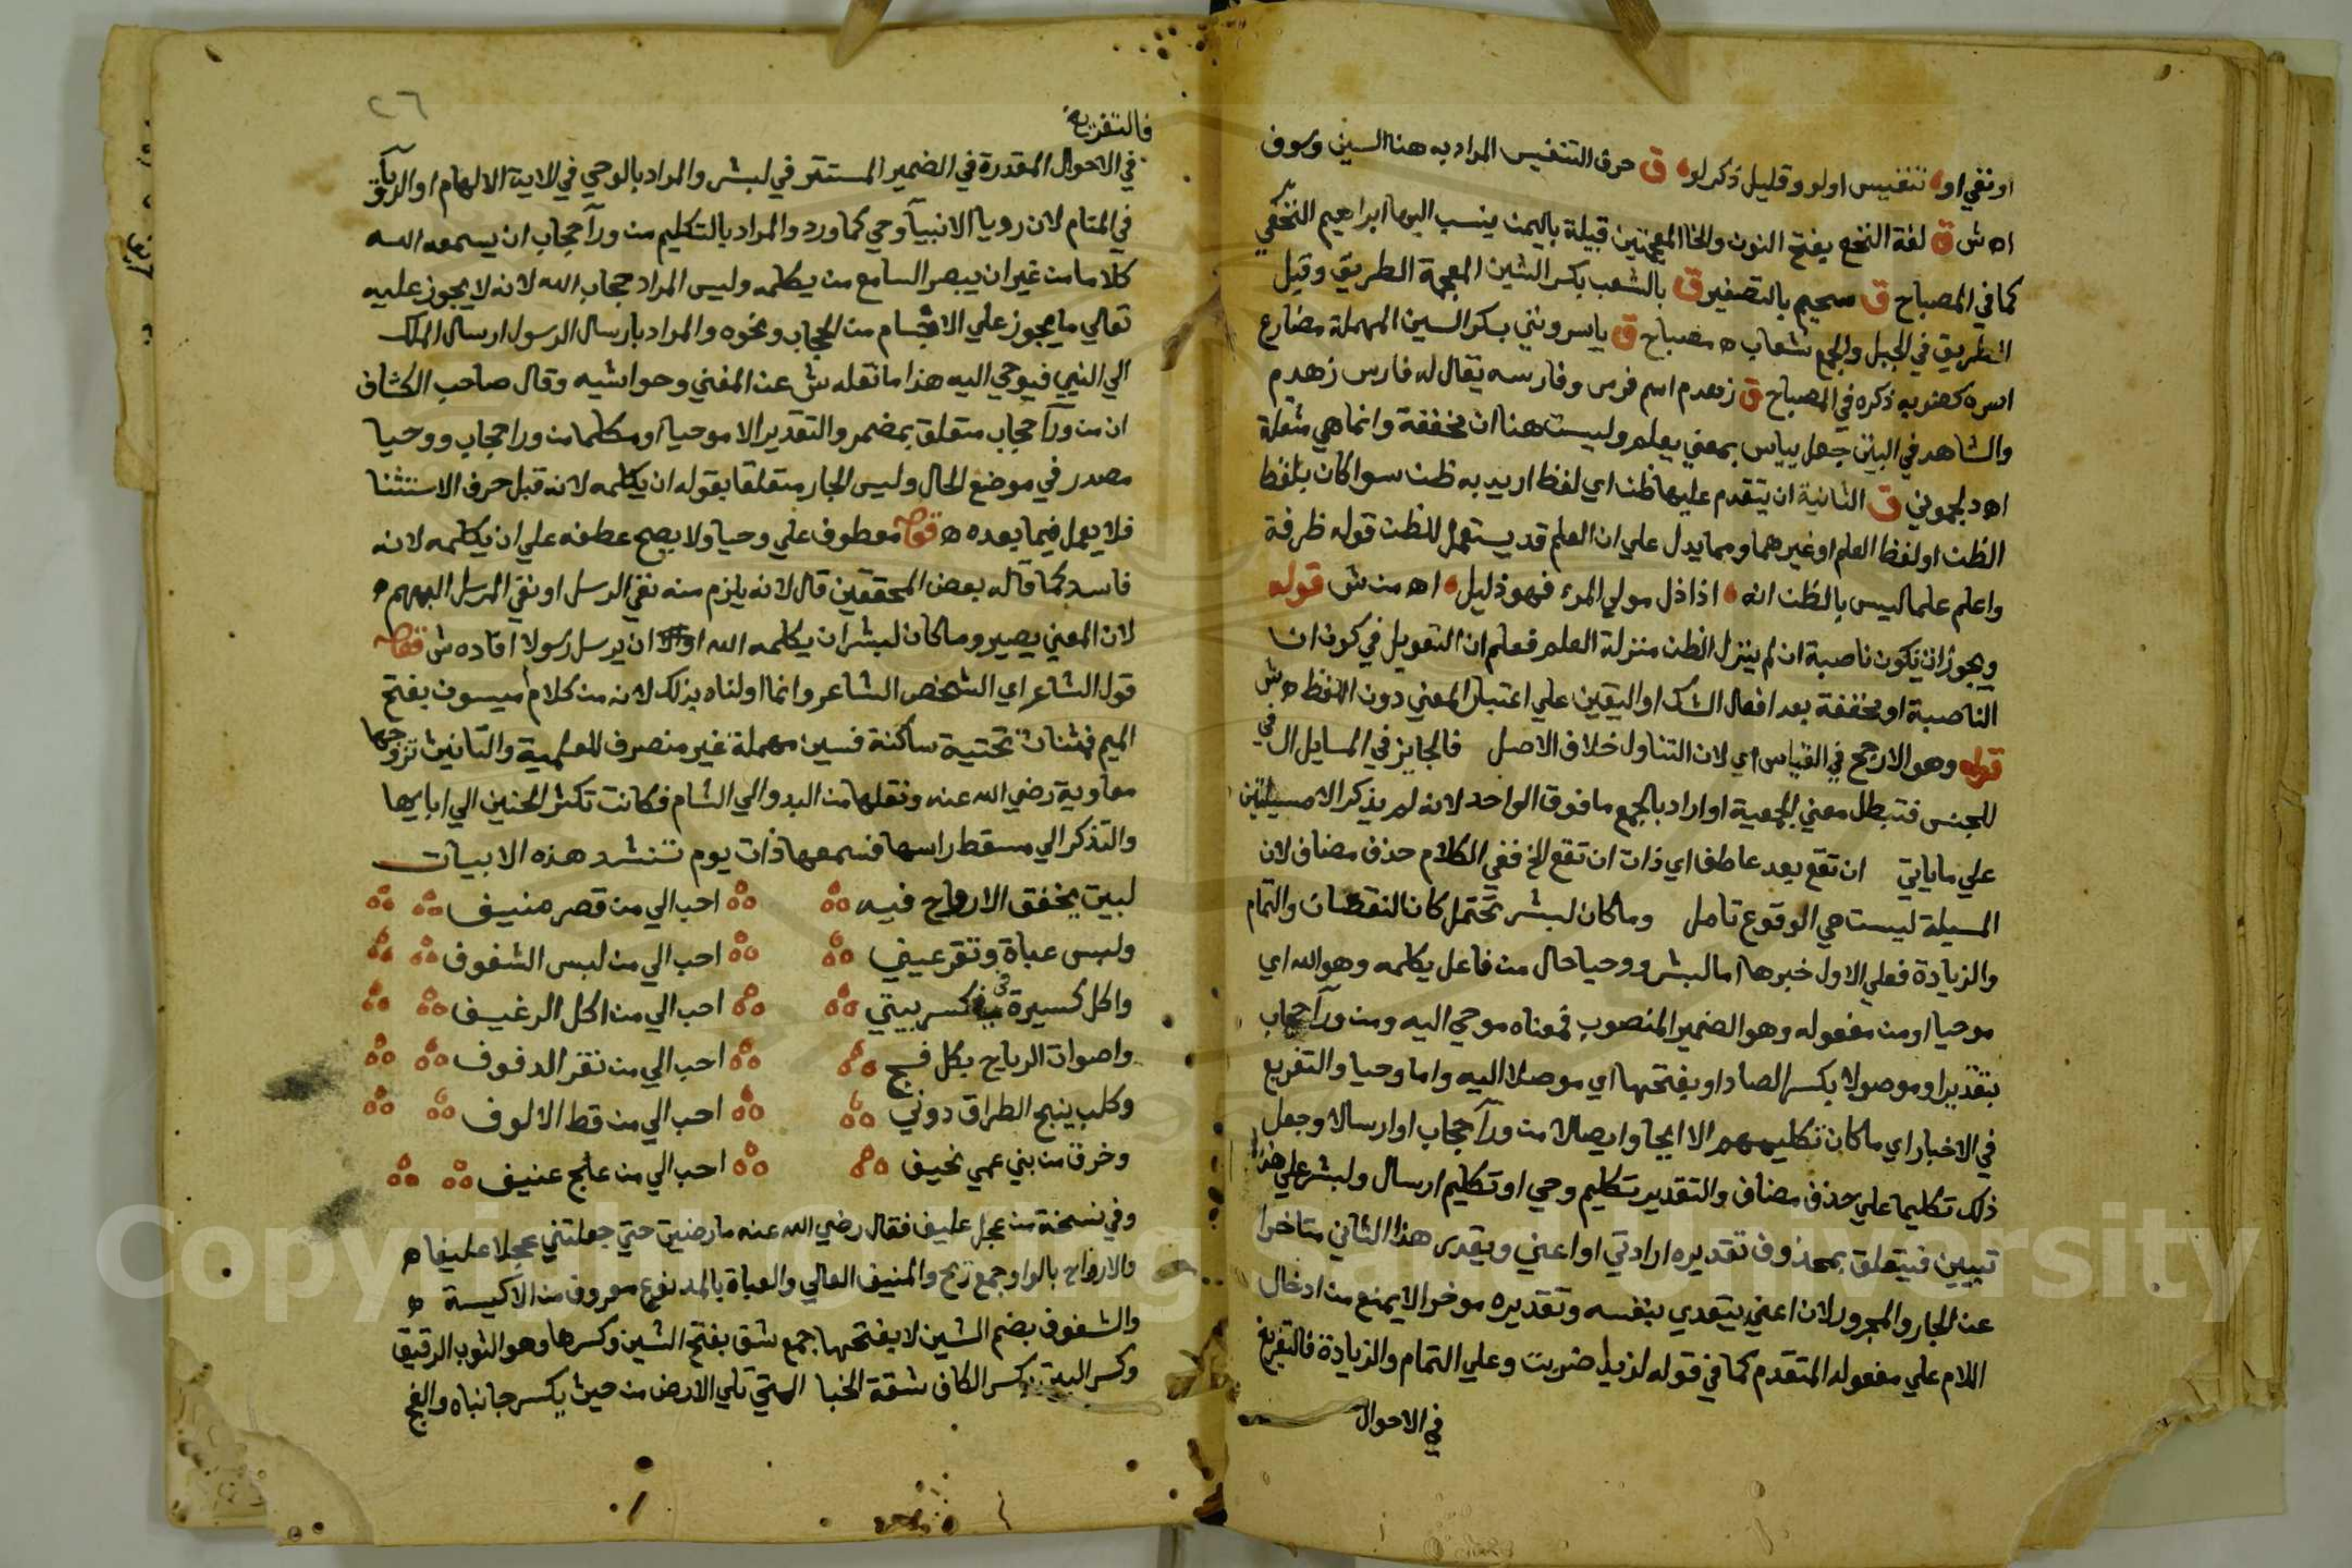 او نفي او تنفيس اولو وقليل ذكر لو ق حرف التنفيس المراد به هنا السين وسوف
اه ش ق لغة النخع بفتح النون والخا المعجمتين قبيلة باليمن ينسب اليها ابراهيم النخعي
كما في المصباح ق سحيم بالتصغير ق بالشعب بكسر الشين المعجمة الطريق وقيل
الطريق في الجبل والجمع شعاب ه مصباح ق ياسرونني بسكر السين المهملة مضارع
اسره كضربه ذكره في المصباح ق زهدم اسم فرس وفارسه يقال له فارس زهدم
والشاهد في البيت جعل يياس بمعني يعلم وليست هنا ان مخففة وانما هي مثقلة
اه دلجموني ق الثانية ان يتقدم عليها ظن اي لفظ اريد به ظن سوا كان بلفظ
الظن او لفظ العلم او غيرهما ومما يدل علي ان العلم قد يستعمل للظن قوله ظرفة
واعلم علما ليس بالظن انه اذا ذل مولي المرء فهو ذليل اه من ش قوله
ويجوز ان تكون ناصبة ان لم ينزل الظن منزلة العلم فعلم ان التعويل في كون ان
الناصبة او مخففة بعد افعال الشك او اليقين علي اعتبار المعني دون اللفظ ه ش
قوله وهو الارجح في القياس اي لان التناول خلاف الاصل فالجايز في المسايل ال في
للجنس فتبطل معني الجمعية او اراد بالجمع ما فوق الواحد لانه لم يذكر الا مسيلتين
علي ماياتي ان تقع بعد عاطف اي ذات ان تقع الخ ففي الكلام حذف مضاف لان
المسيلة ليست هي الوقوع تامل وماكان لبشر تحتمل كان النقصان والتمام
والزيادة فعلي الاول خبرها اما لبشر ووحيا حال من فاعل يكلمه وهو الله اي
موحيا او من مفعوله وهو الضمير المنصوب فمعناه موحي اليه ومن ورآ حجاب
بتقدير او موصولا بكسر الصاد او بفتحها اي موصلا اليه واما وحيا والتفريع
في الاخبار اي ماكان تكليمهم الا ايحا او ايصالا من ورآ حجاب او ارسالا وجعل
ذلك تكليما علي حذف مضاف والتقدير تكليم وحي او تكليم ارسال ولبشر علي هذا
تبيين فيتعلق بمحذوف تقديره ارادتي او اعني ويقدر هذا الثاني متاخرا
عن الجار والمجرور لان اعني يتعدي بنفسه وتقديره موخرا لا يمنع من ادخال
اللام علي مفعوله المتقدم كما في قوله لزيد ضربت وعلي التمام والزيادة فالتفريغ
في الاحوال
٢٦
فالتفريغ
في الاحوال المقدرة في الضمير المستتر في لبشر والمراد بالوحي في الاية الالهام او الرويا
في المنام لان رويا الانبيآ وحي كما ورد والمراد بالتكليم من ورآ حجاب ان يسمعه الله
كلاما من غير ان يبصر السامع من يكلمه وليس المراد حجاب الله لانه لا يجوز عليه
تعالي ما يجوز علي الاجسام من الحجاب ونحوه والمراد بارسال الرسول ارسال الملك
الي النبي فيوحي اليه هذا ما نقله ش عن المغني وحواشيه وقال صاحب الكشاف
ان من ورآ حجاب متعلق بمضمر والتقدير الا موحيا او مكلما من ورا حجاب ووحيا
مصدر في موضع الحال وليس الجار متعلقا بقوله ان يكلمه لانه قبل حرف الاستثنا
فلا يعمل فيما بعده ه قوله معطوف علي وحيا ولا يصح عطفه علي ان يكلمه لانه
فاسد كما قاله بعض المحققين قال لانه يلزم منه نفي الرسل او نفي المرسل اليهم ه
لان المعني يصير وماكان لبشر ان يكلمه الله او ان يرسل رسولا افاده ش قوله
قول الشاعر اي الشخص الشاعر وانما اولناه بذلك لانه من كلام ميسون بفتح
الميم فمثناة تحتية ساكنة فسين مهملة غير منصرف للعلمية والتانيث تزوجها
معاوية رضي الله عنه ونقلها من البدو الي الشام فكانت تكثر الحنين الي ابايها
والتذكر الي مسقط راسها فسمعها ذات يوم تنشد هذه الابيات
لبيت يخفق الارواح فيه احب الي من قصر منيف
ولبس عباة وتقر عيني احب الي من لبس الشفوف
واكل كسيرة في كسر بيتي احب الي من اكل الرغيف
واصوات الرياح بكل فج احب الي من نقر الدفوف
وكلب ينبح الطراق دوني احب الي من قط الالوف
وخرق من بني عمي نحيف احب الي من علج عنيف
وفي نسخة من عجل عليف فقال رضي الله عنه ما رضيت حتي جعلتني عجلا عليفا ه
والارواح بالواو جمع ريح والمنيف العالي والعباة بالمد نوع معروف من الاكيسة ه
والشفوف بضم الشين لا بفتحها جمع شف بفتح الشين وكسرها وهو الثوب الرقيق
وكسر البيت بكسر الكاف شقة الخبا التي تلي الارض من حيث يكسر جانباه والفج
Copyright © King Saud University